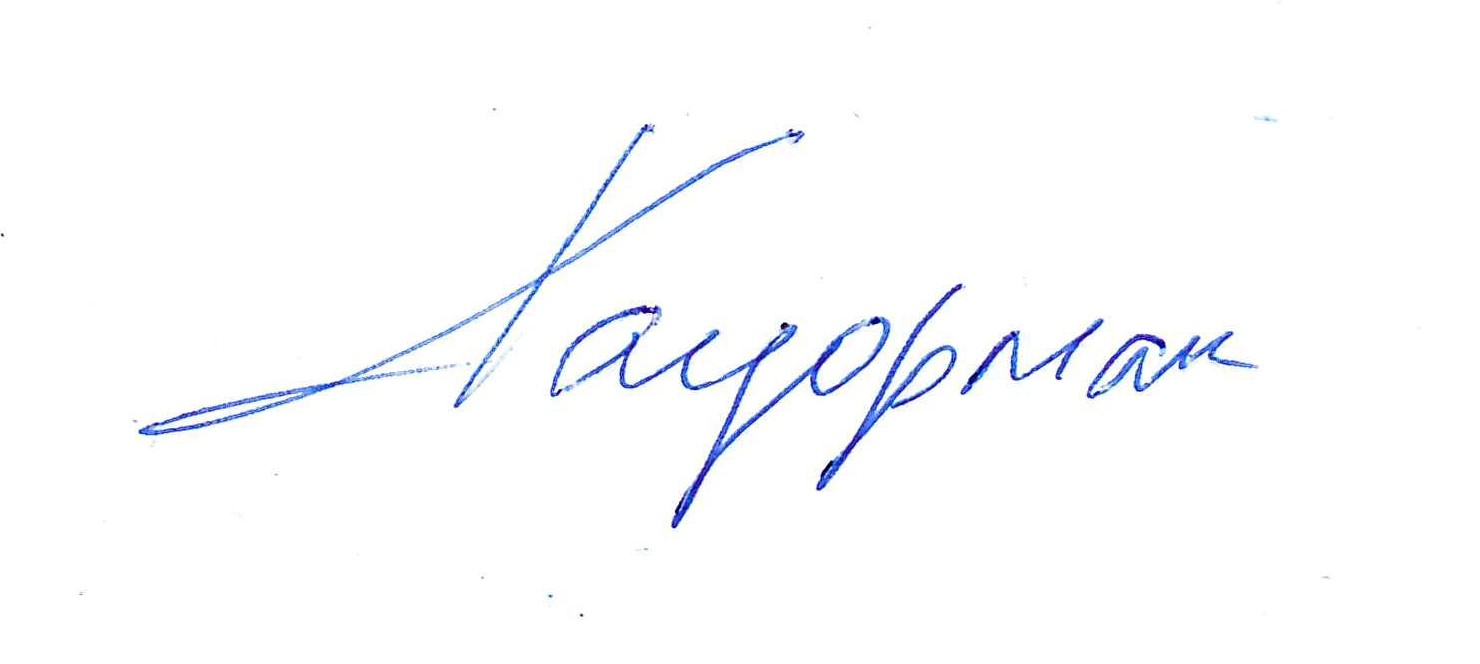 Кацорман